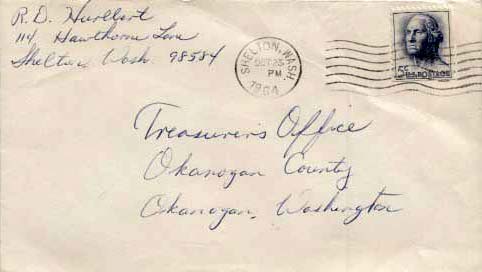 R. D. Hurlbert
114 Hawthorne Lane
Shelton, Wash. 98584
SHELTON, WASH.
OCT 23
PM
1964
5¢ U.S. POSTAGE
Treasurer's Office
Okanogan County
Okanogan, Washington